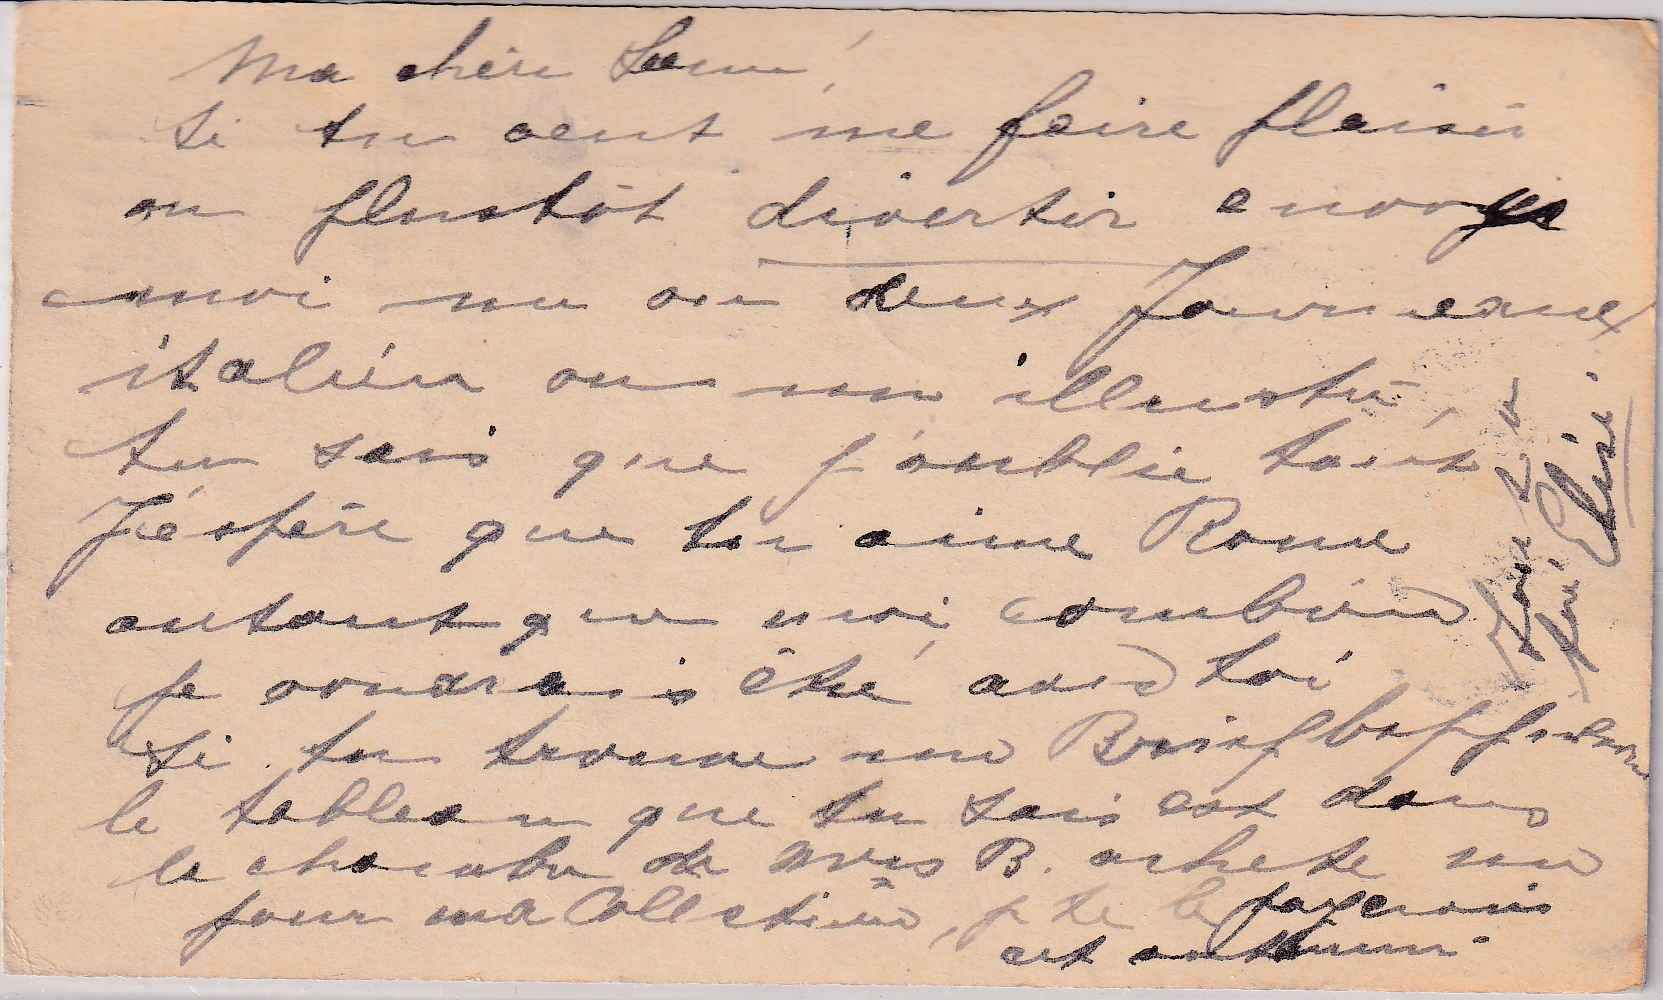 Ma chère Soeur,
Si tu veut me faire plaisir
ou plustôt divertir envoye
moi un ou deux Journeaux
italien ou un illustré,
tu sais que j'oublie tout
J'éspére que tu aime Rome
autant que moi, combien
je voudrais être avec toi
Si tu trouve un
le tableau que tu sais est dans
la chambre de Mrs B. achete un
pour ma Collection, je te le payerais
cet automne
Elise